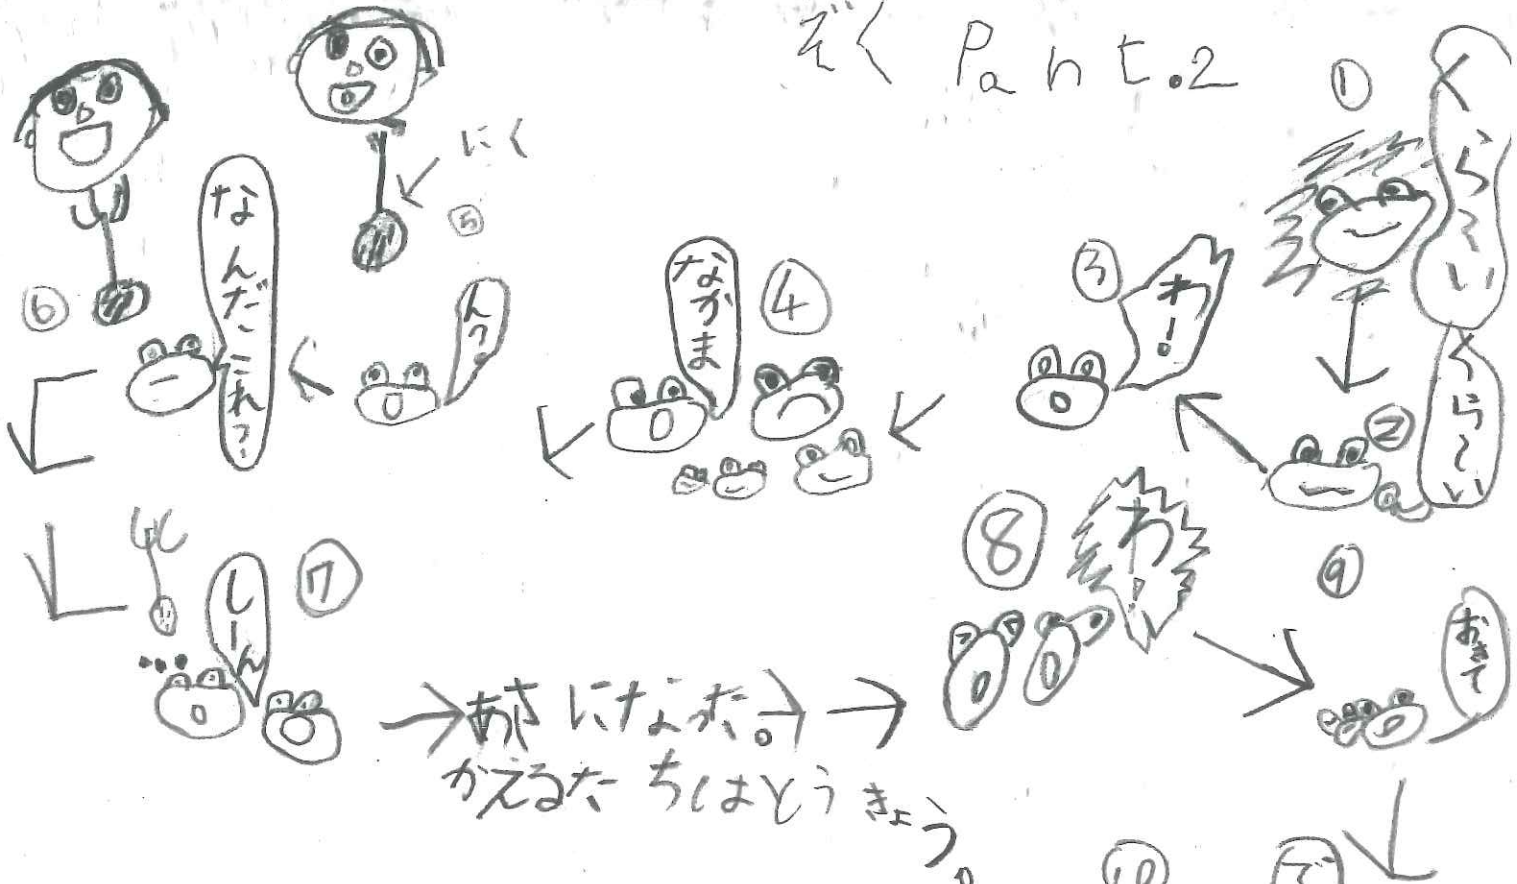 ぞく Part.2
①
くら～い
くら～い
②
③
わ!
④
なかま
⑤
にく
ん?
⑥
なんだこれ?
⑦
しーん
あさになった。
かえるたちはとうきょう
⑧
わ!
⑨
おきて
⑩
で